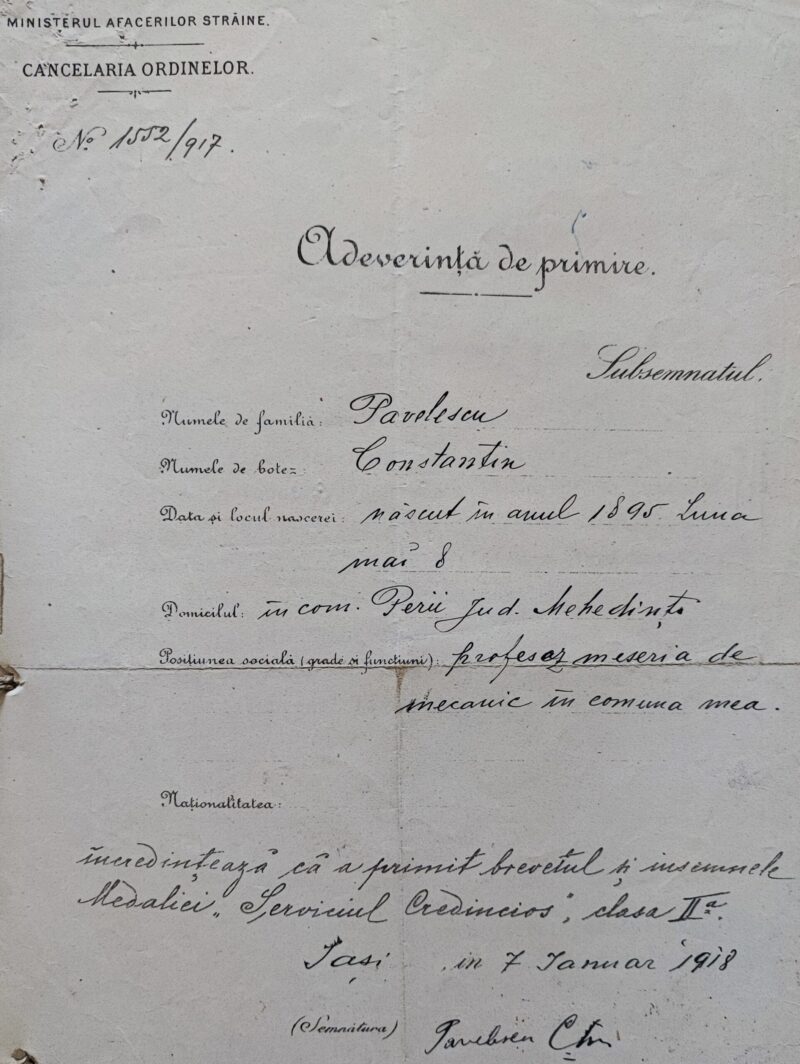 MINISTERUL AFACERILOR STRĂINE.
CANCELARIA ORDINELOR.
No 1552/917.
Adeverință de primire.
Subsemnatul.
Numele de familiă: Pavelescu
Numele de botez: Constantin
Data și locul nascerei: născut în anul 1895 Luna
mai 8
Domicilul: în com. Perii Jud. Mehedinți
Positiunea socială (grade si functiuni): profesez meseria de
mecanic în comuna mea.
Naționalitatea:
încredințează că a primit brevetul și insemnele
Medaliei „Serviciul Credincios", clasa IIa.
Iași, in 7 Ianuar 1918
(Semnătura) Pavelescu Ctin